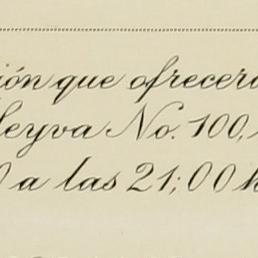 ión que ofrecer
Leyva No. 100,
0 a las 21:00 h